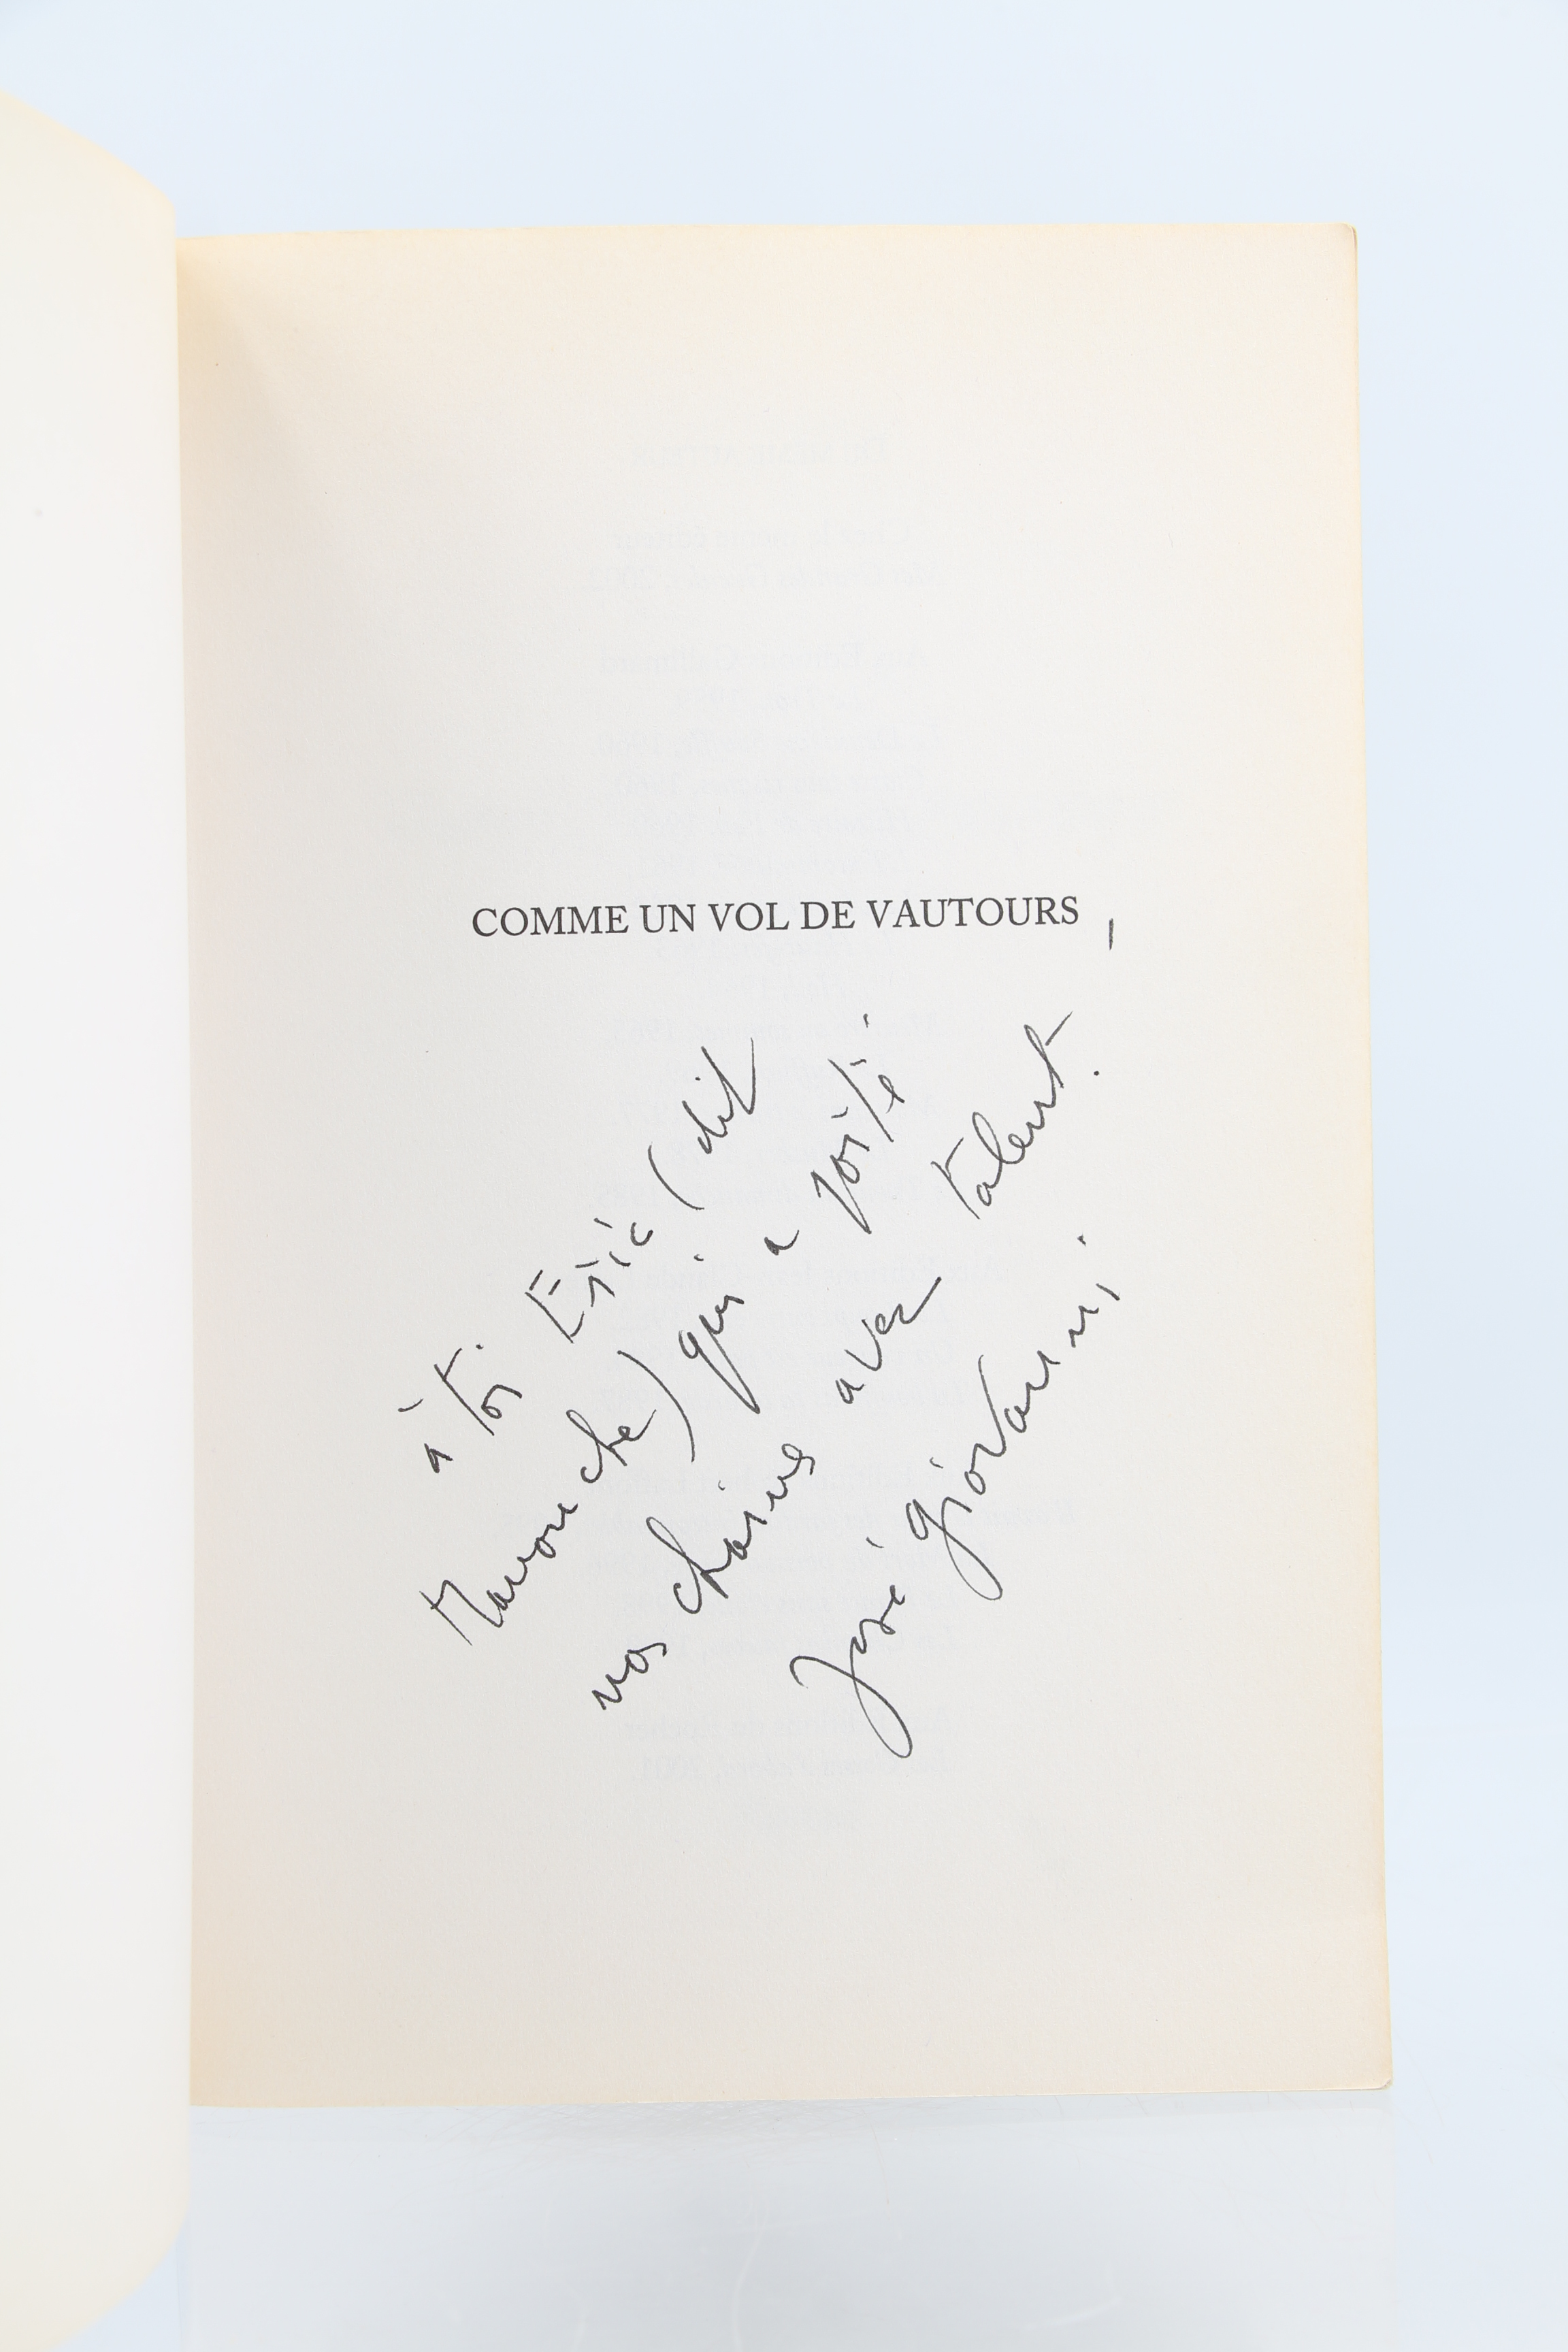 COMME UN VOL DE VAUTOURS
à toi Eric (dit
Manouche) qui a porté
nos chaines avec talent.
José Giovanni